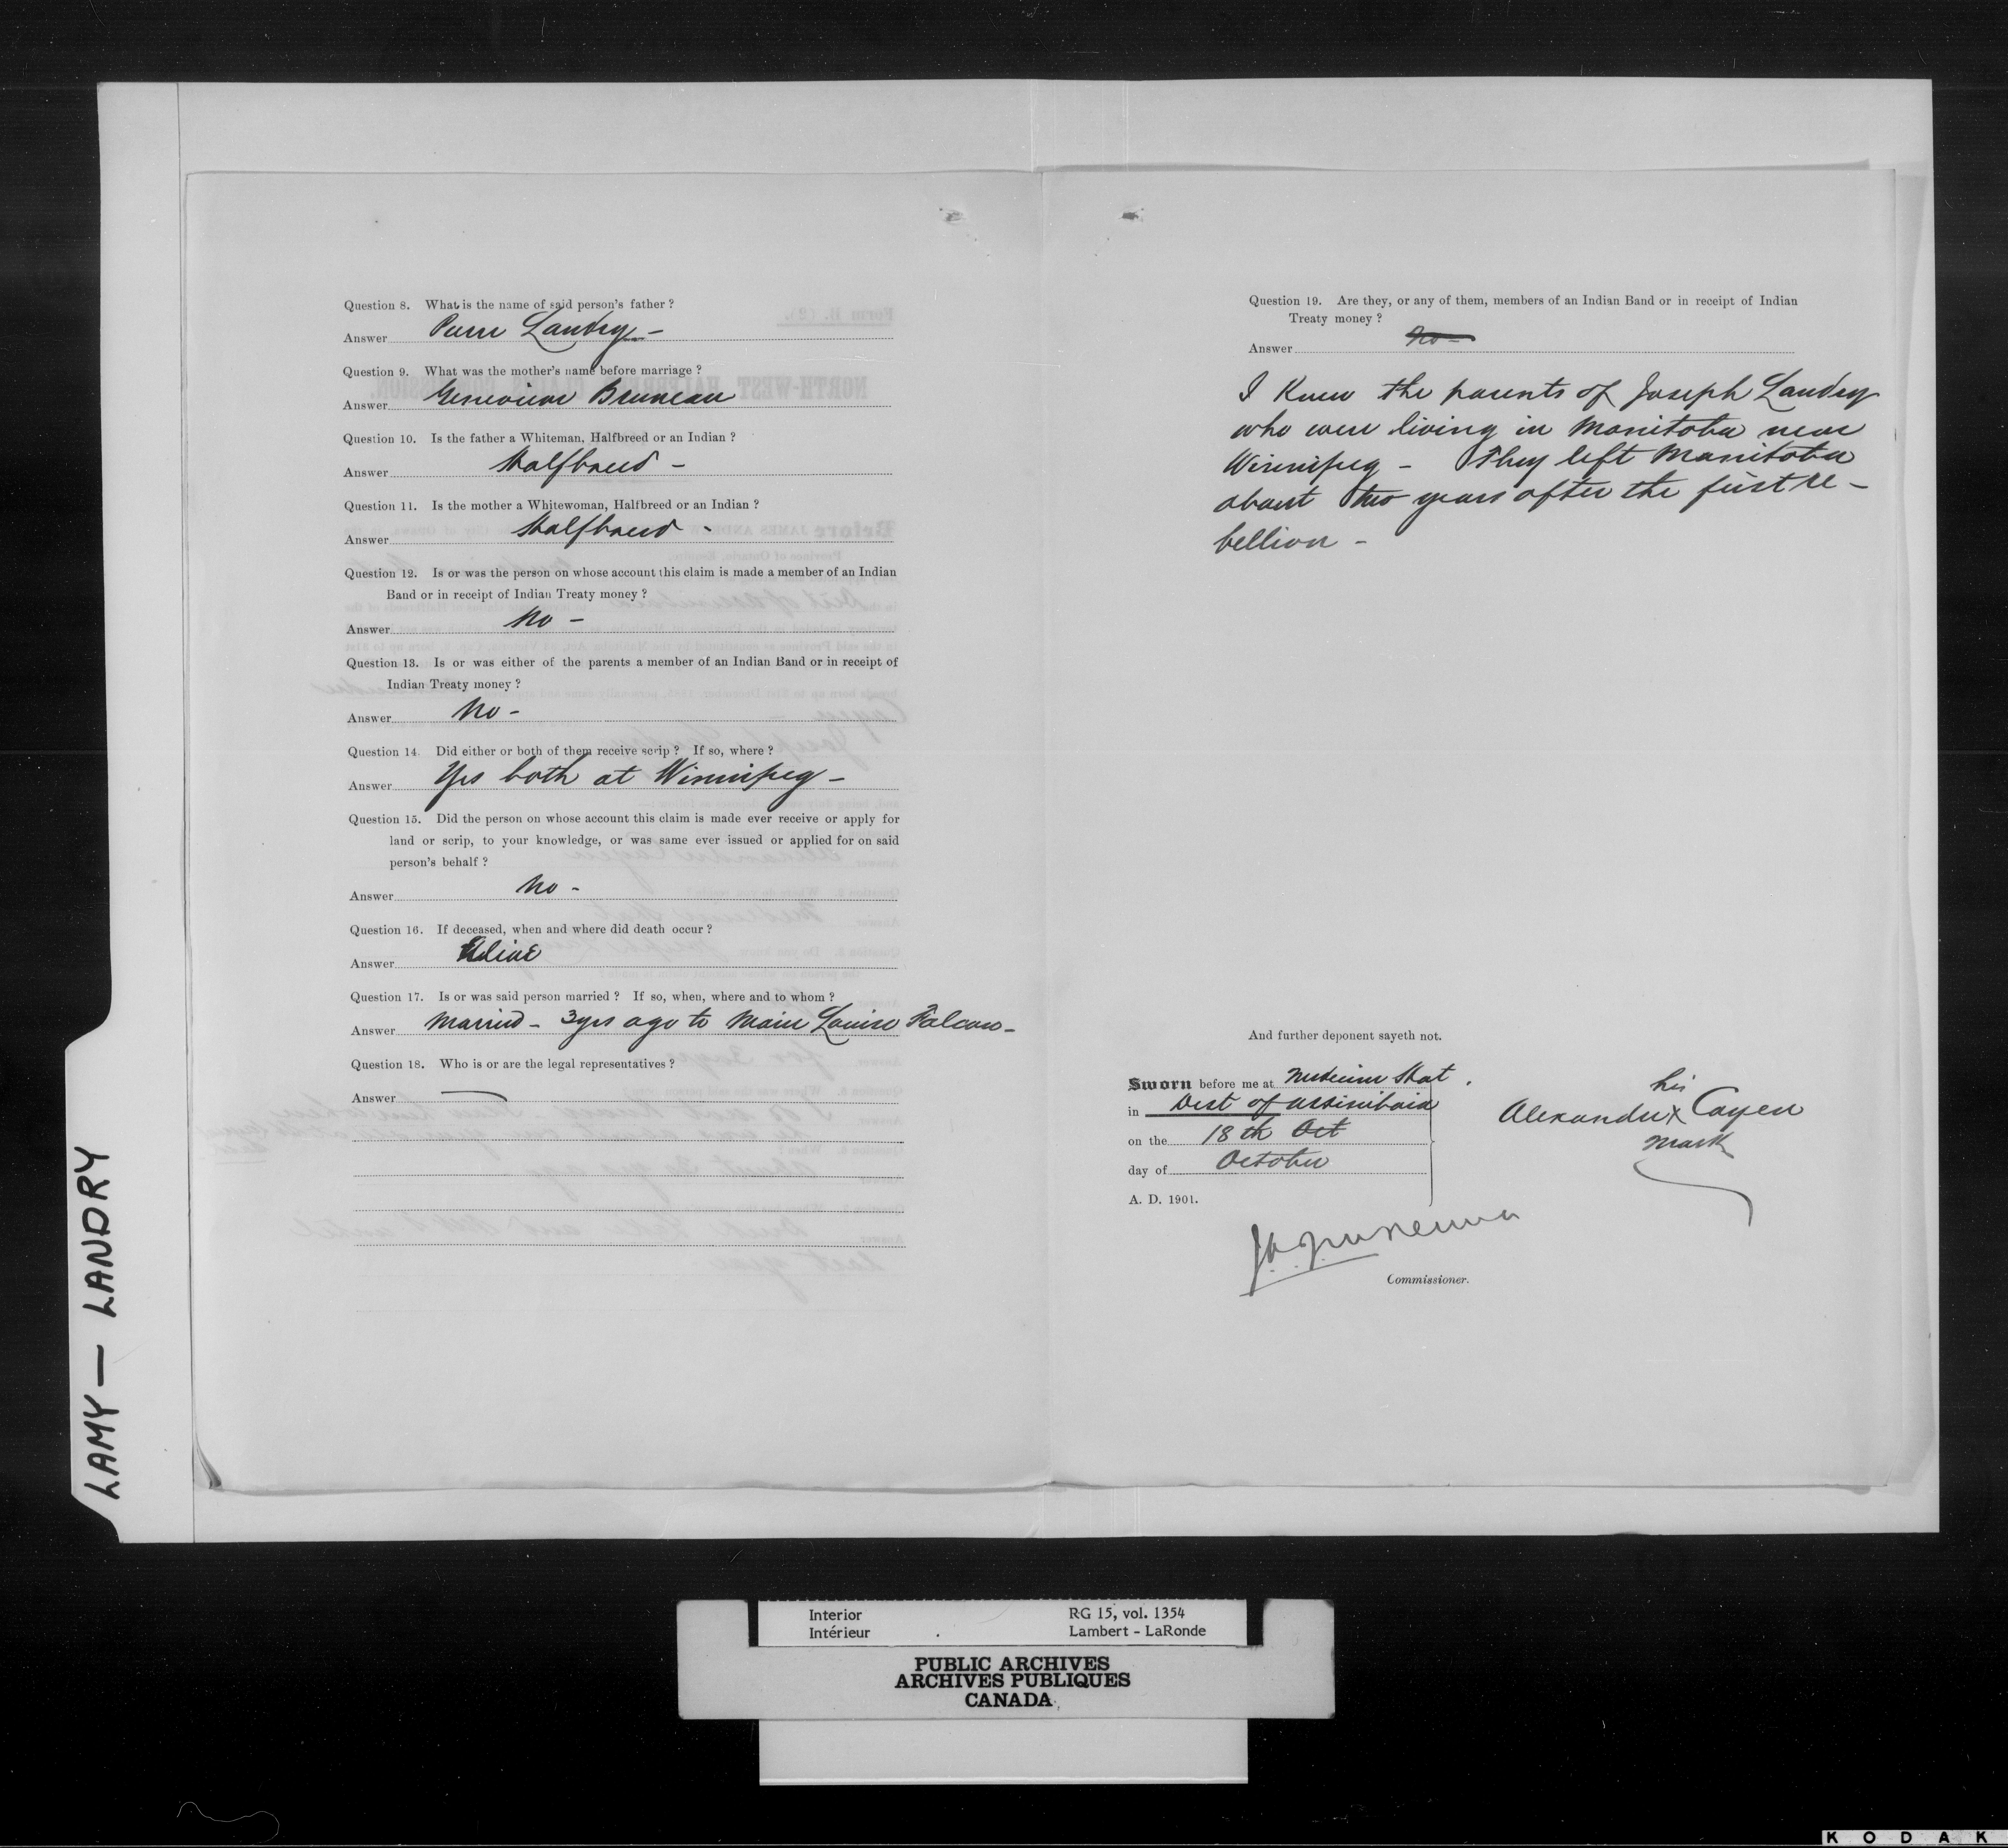 Question 8. What is the name of said person's father ?
Answer Pierre Landry -
Question 9. What was the mother's name before marriage ?
Answer Genevieve Bruneau
Question 10. Is the father a Whiteman, Halfbreed or an Indian ?
Answer Halfbreed -
Question 11. Is the mother a Whitewoman, Halfbreed or an Indian ?
Answer Halfbreed -
Question 12. Is or was the person on whose account this claim is made a member of an Indian
Band or in receipt of Indian Treaty money ?
Answer No -
Question 13. Is or was either of the parents a member of an Indian Band or in receipt of
Indian Treaty money ?
Answer No -
Question 14 Did either or both of them receive scrip ? If so, where ?
Answer Yes both at Winnipeg -
Question 15. Did the person on whose account this claim is made ever receive or apply for
land or scrip, to your knowledge, or was same ever issued or applied for on said
person's behalf ?
Answer No -
Question 16. If deceased, when and where did death occur ?
Answer Alive
Question 17. Is or was said person married ? If so, when, where and to whom ?
Answer Married - 3 yrs ago to Marie Louise Falcon -
Question 18. Who is or are the legal representatives ?
Answer —
Question 19. Are they, or any of them, members of an Indian Band or in receipt of Indian
Treaty money ?
Answer No -
I knew the parents of Joseph Landry
who were living in Manitoba near
Winnipeg - They left Manitoba
about two years after the first re-
bellion -
And further deponent sayeth not.
Sworn before me at Medicine Hat .
in Dist of Assiniboia
on the 18th Oct
day of October
A. D. 1901.
his
Alexandre x Cayen
mark
Commissioner.
LAMY — LANDRY
Interior
Intérieur
RG 15, vol. 1354
Lambert - LaRonde
PUBLIC ARCHIVES
ARCHIVES PUBLIQUES
CANADA
KODAK